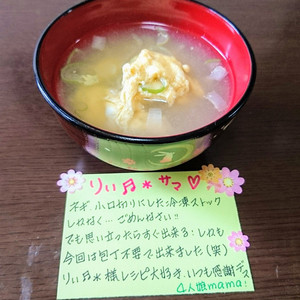 りぃ♬*サマ♡
ネギ 小口切りにした冷凍ストック
しかなく…ごめんなさい!!
でも思い立ったらすぐ出来る:しかも
今回は包丁不要で出来ました(笑)
りぃ♬*様レシピ大好き。いつも感謝デス
4人娘mama: